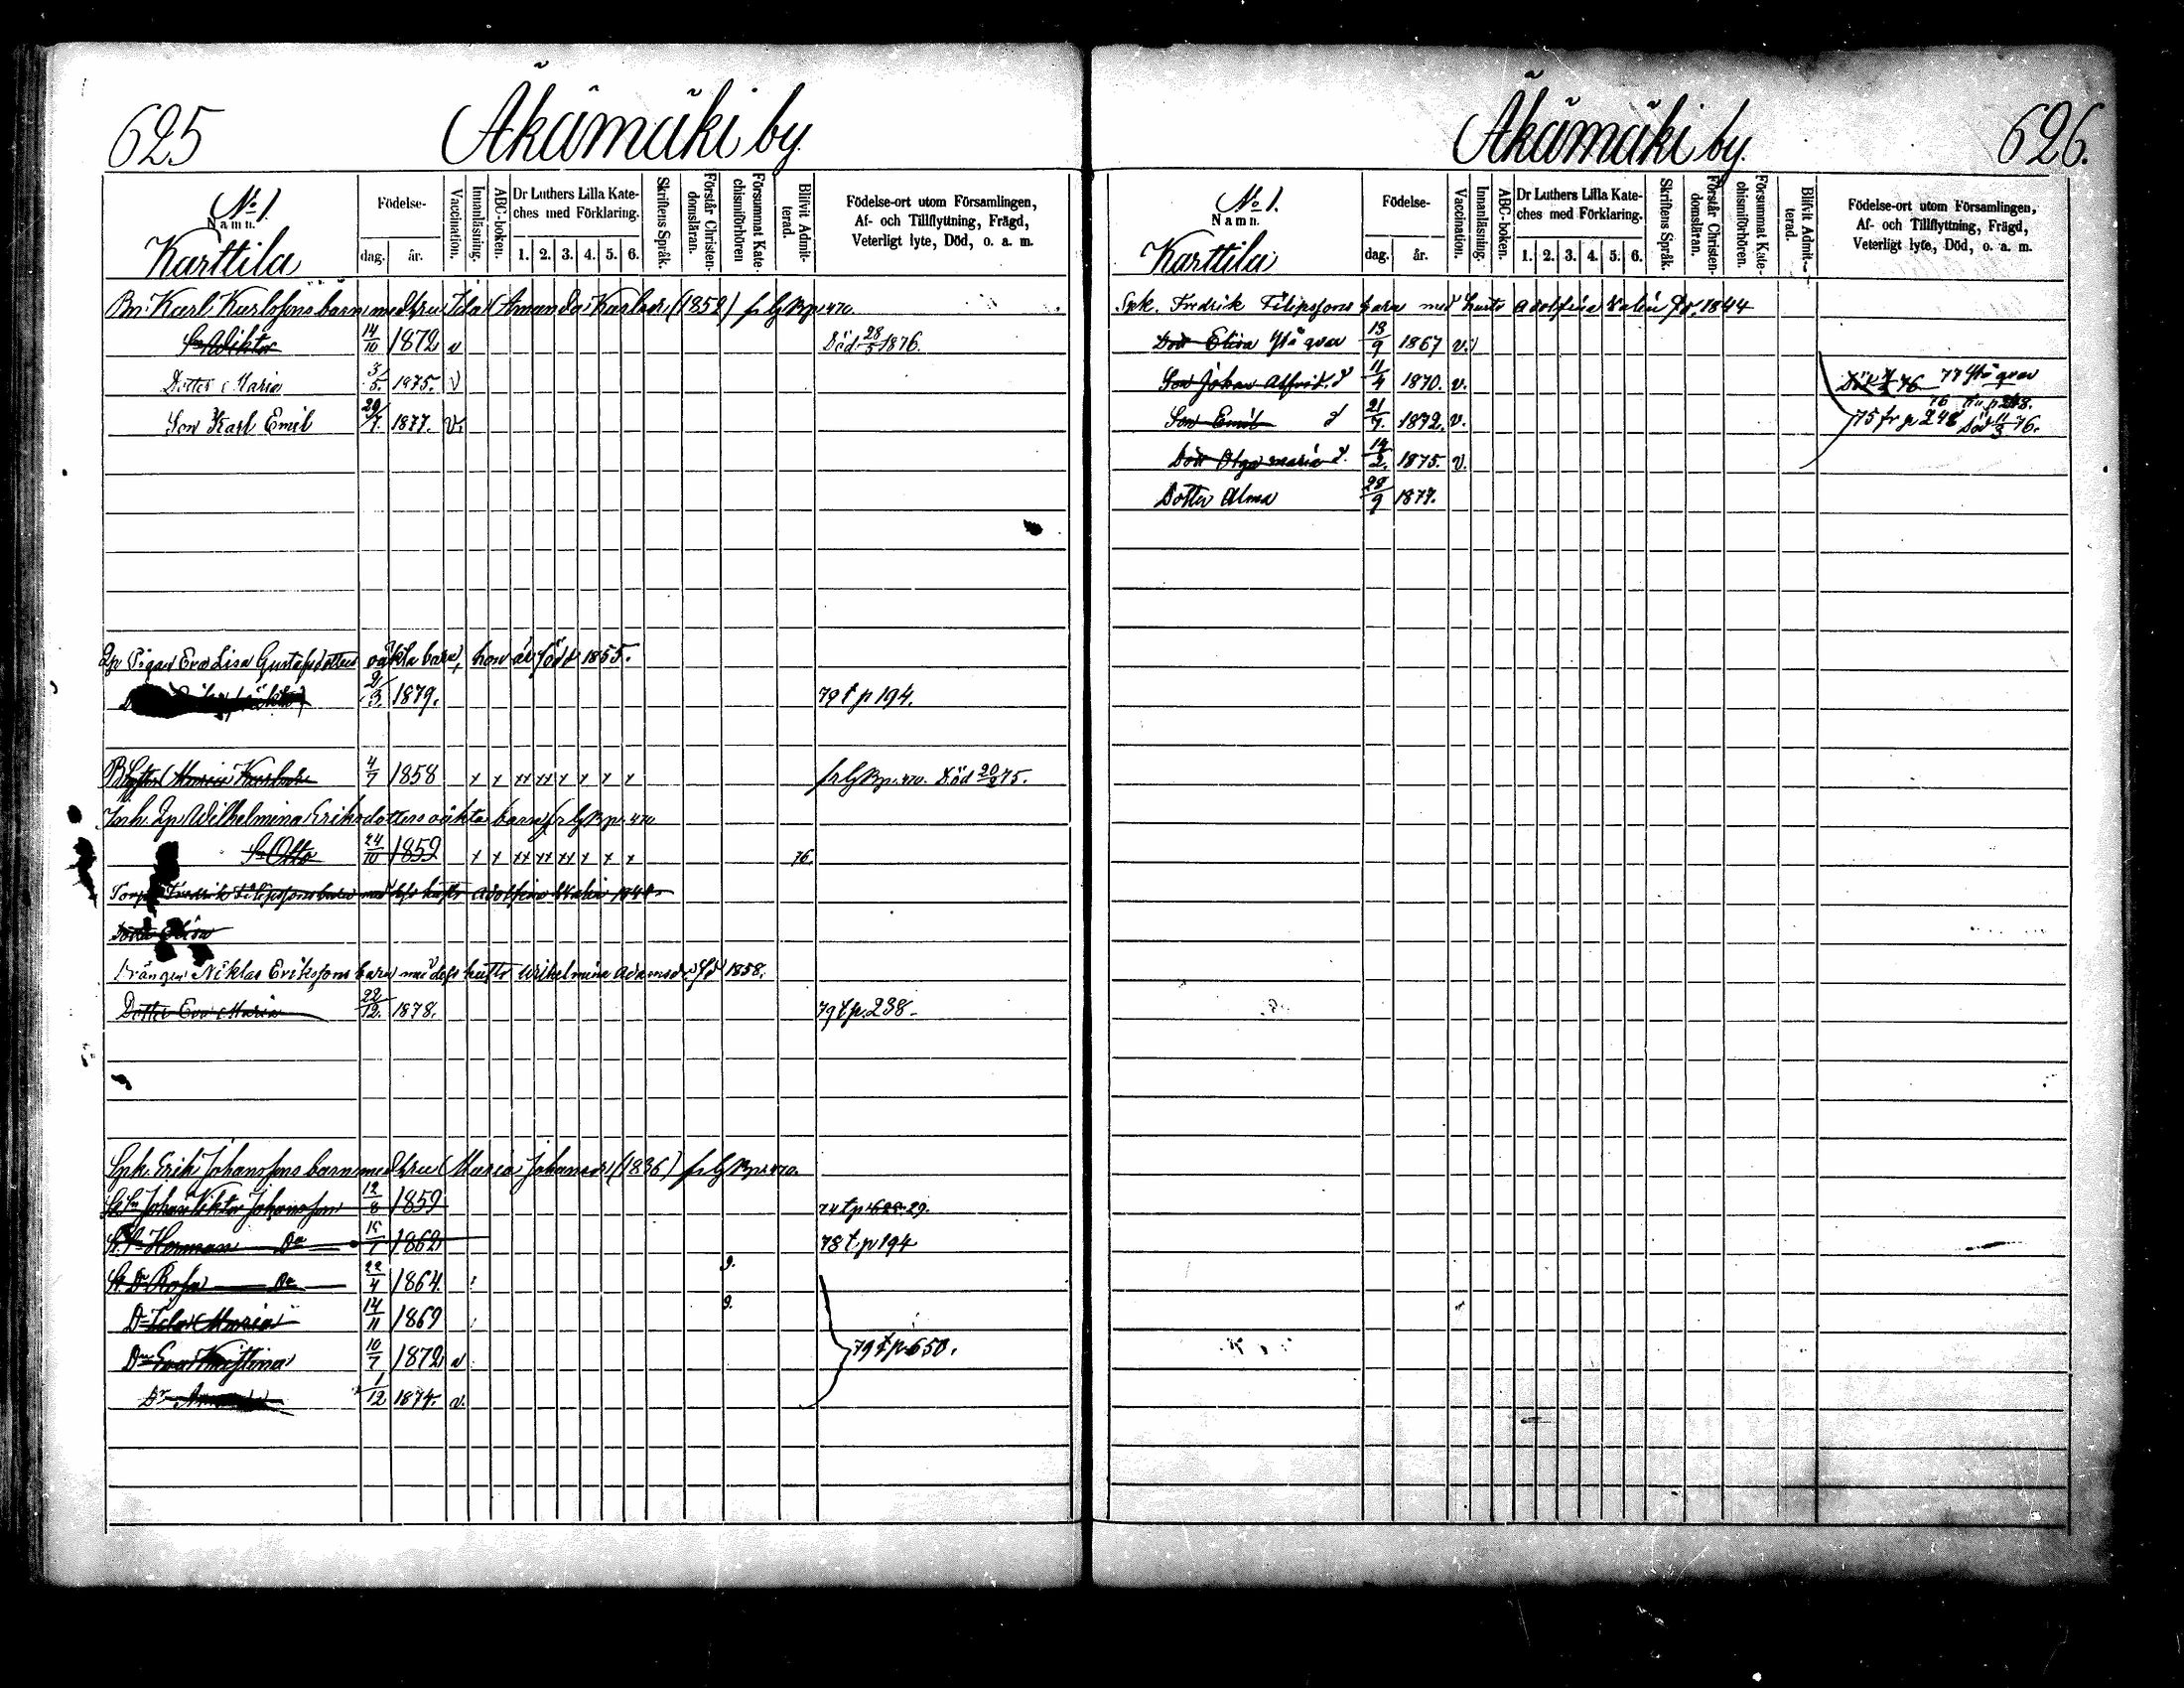 625
Äkämäki by
No 1.
Namn.
Karttila
Födelse-
dag.
år.
Vaccination.
Innanläsning.
ABC-boken.
Dr Luthers Lilla Kate-
ches med Förklaring.
1. 2. 3. 4. 5. 6.
Skriftens Språk.
Förstår Christen-
domsläran.
Försummat Kate-
chismiförhören
Blifvit Admit-
terad.
Födelse-ort utom Församlingen,
Af- och Tillflyttning, Frägd,
Veterligt lyte, Död, o. a. m.
Karl Karlssons barn med hru Ida Amanda Karlsdr (1852) fr GBp. 470.
Sn Wiktor 14/10 1872 v Död 28/5 1876.
Dotter Maria 3/5. 1875. v
Son Karl Emil 29/7. 1877. v.
Pigan Eva Lisa Gustafsdotters oäkta barn, hon är född 1855.
2/3. 1879. 79 t p 194.
Maria Karlsdr 4/7 1858 x x xx xx x x x x fr GBp. 470. Död 20/2 75.
Inh. Wilhelmina Eriksdotters oäkta barn fr GBp. 470
Sn Otto 24/10 1859 x x xx xx xx x x x 76.
Fredrik Filipssons barn med hustr Adolfina Walin 1844
Elisa
Drängen Niklas Erikssons barn med dess hustr Wilhelmina Adamsdr. fd 1858.
Dotter Eva Maria 22/12. 1878. 79 t p. 238.
Spk. Erik Johanssons barn med hru Maria Johansdr (1836) fr GBp. 470.
St. Sn Johan Viktor Johansson 12/8 1859 74 t p 29.
St. Sn Herman Do 15/7 1862 78 t p 194
St. Dr Rosa Do 22/4 1864. 9.
Dr Ida Maria 14/11 1869 9.
Dr Eva Kristina 10/7 1872 v 79 t p 650.
Dr 1/12 1874. v.
Äkämäki by.
626.
No 1.
Namn.
Karttila
Födelse-
dag.
år.
Vaccination.
Innanläsning.
ABC-boken.
Dr Luthers Lilla Kate-
ches med Förklaring.
1. 2. 3. 4. 5. 6.
Skriftens Språk.
Förstår Christen-
domsläran.
Försummat Kate-
chismiförhören.
Blifvit Admit-
terad.
Födelse-ort utom Församlingen,
Af- och Tillflyttning, Frägd,
Veterligt lyte, Död, o. a. m.
Spk. Fredrik Filipssons barn med hustr Adolfina Walin fd. 1844
Dotr Elisa 13/9 1867 v.
Son Johan Alfrid. d 11/4 1870. v. 76 77
Son Emil d 21/7. 1872. v. 75 fr p 248 Död 11/3 76.
Dotr Olga Maria d. 14/2. 1875. v.
Dotter Alma 28/9 1877.